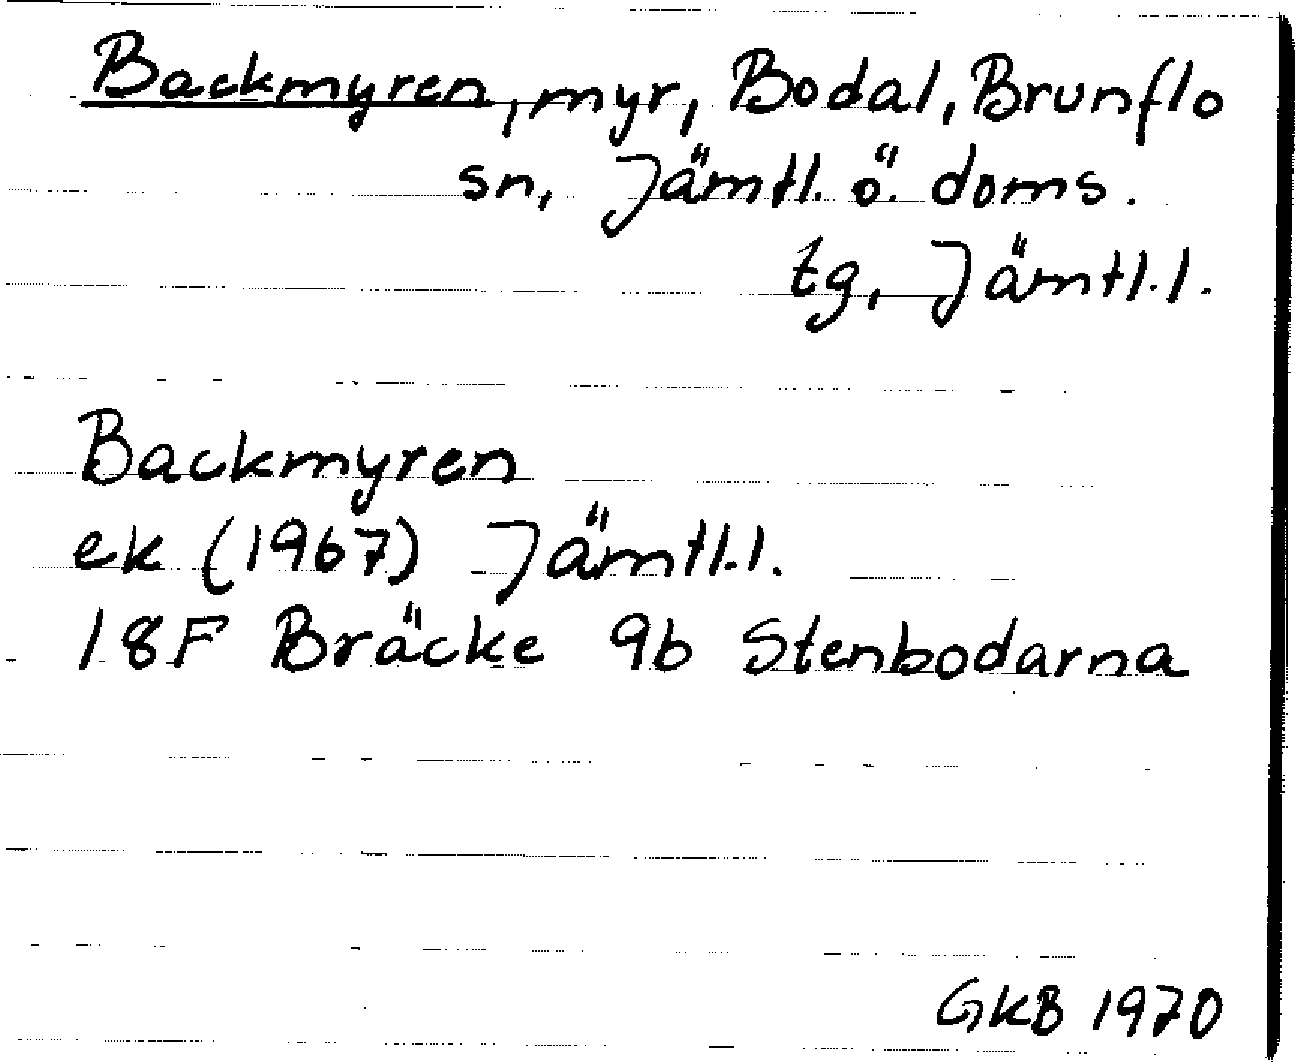 Backmyren, myr, Bodal, Brunflo
sn, Jämtl. ö. doms.
tg, Jämtl.l.
Backmyren
ek (1967) Jämtl.l.
18F Bräcke 9b Stenbodarna
GKB 1970